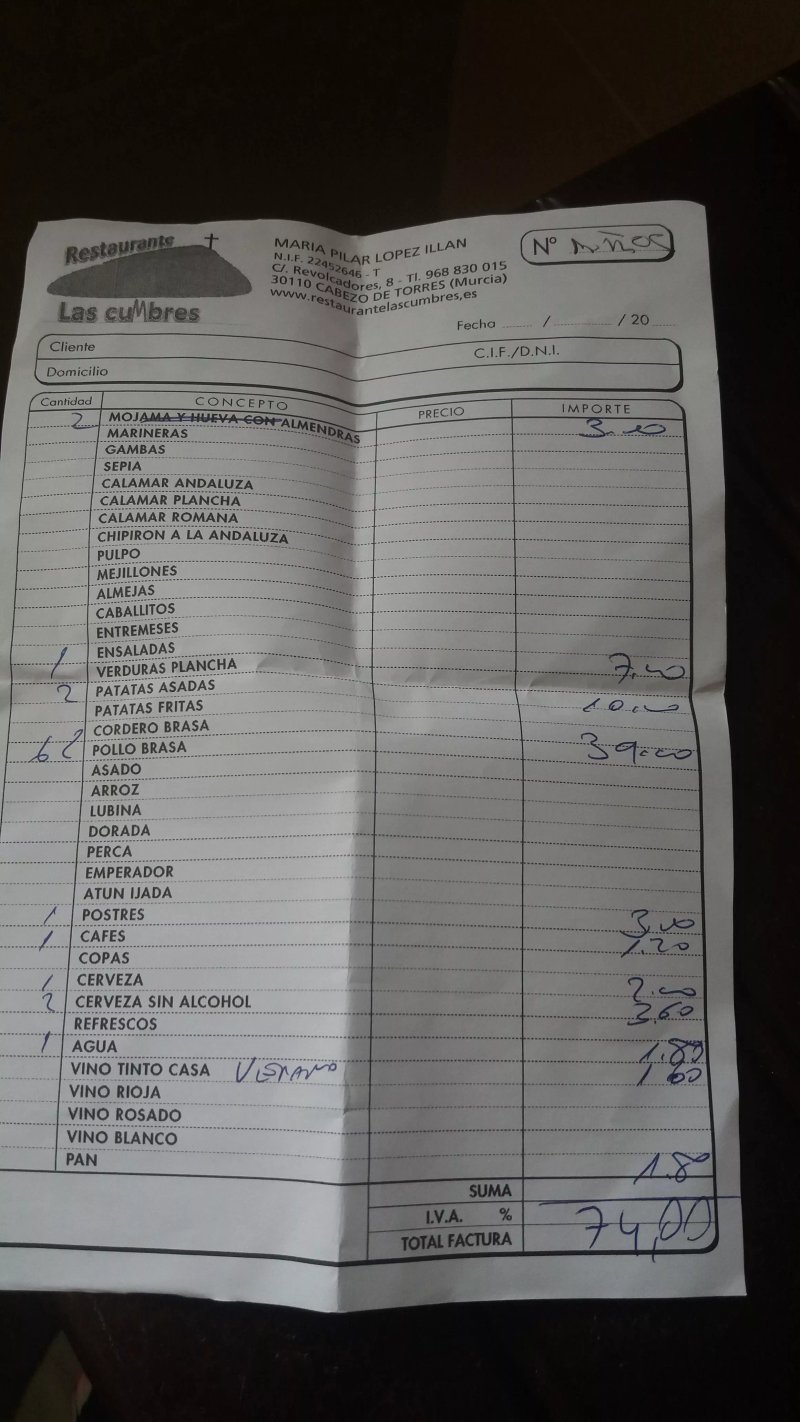 Restaurante
Las cuMbres
MARIA PILAR LOPEZ ILLAN
N.I.F. 22452646 - T
C/. Revolcadores, 8 - Tl. 968 830 015
30110 CABEZO DE TORRES (Murcia)
www.restaurantelascumbres,es
Nº
Fecha ........ / ................ / 20 ......
Cliente C.I.F./D.N.I.
Domicilio
Cantidad CONCEPTO PRECIO IMPORTE
2 MOJAMA Y HUEVA CON ALMENDRAS 3.00
MARINERAS
GAMBAS
SEPIA
CALAMAR ANDALUZA
CALAMAR PLANCHA
CALAMAR ROMANA
CHIPIRON A LA ANDALUZA
PULPO
MEJILLONES
ALMEJAS
CABALLITOS
ENTREMESES
ENSALADAS
1 VERDURAS PLANCHA 7.00
2 PATATAS ASADAS
PATATAS FRITAS 10.00
CORDERO BRASA
POLLO BRASA 39.00
ASADO
ARROZ
LUBINA
DORADA
PERCA
EMPERADOR
ATUN IJADA
1 POSTRES 3.00
1 CAFES 1.20
COPAS
1 CERVEZA 2.00
2 CERVEZA SIN ALCOHOL 3.60
REFRESCOS
1 AGUA 1.80
VINO TINTO CASA VERANO 1 60
VINO RIOJA
VINO ROSADO
VINO BLANCO
PAN 1.80
SUMA
I.V.A. %
TOTAL FACTURA 74,00